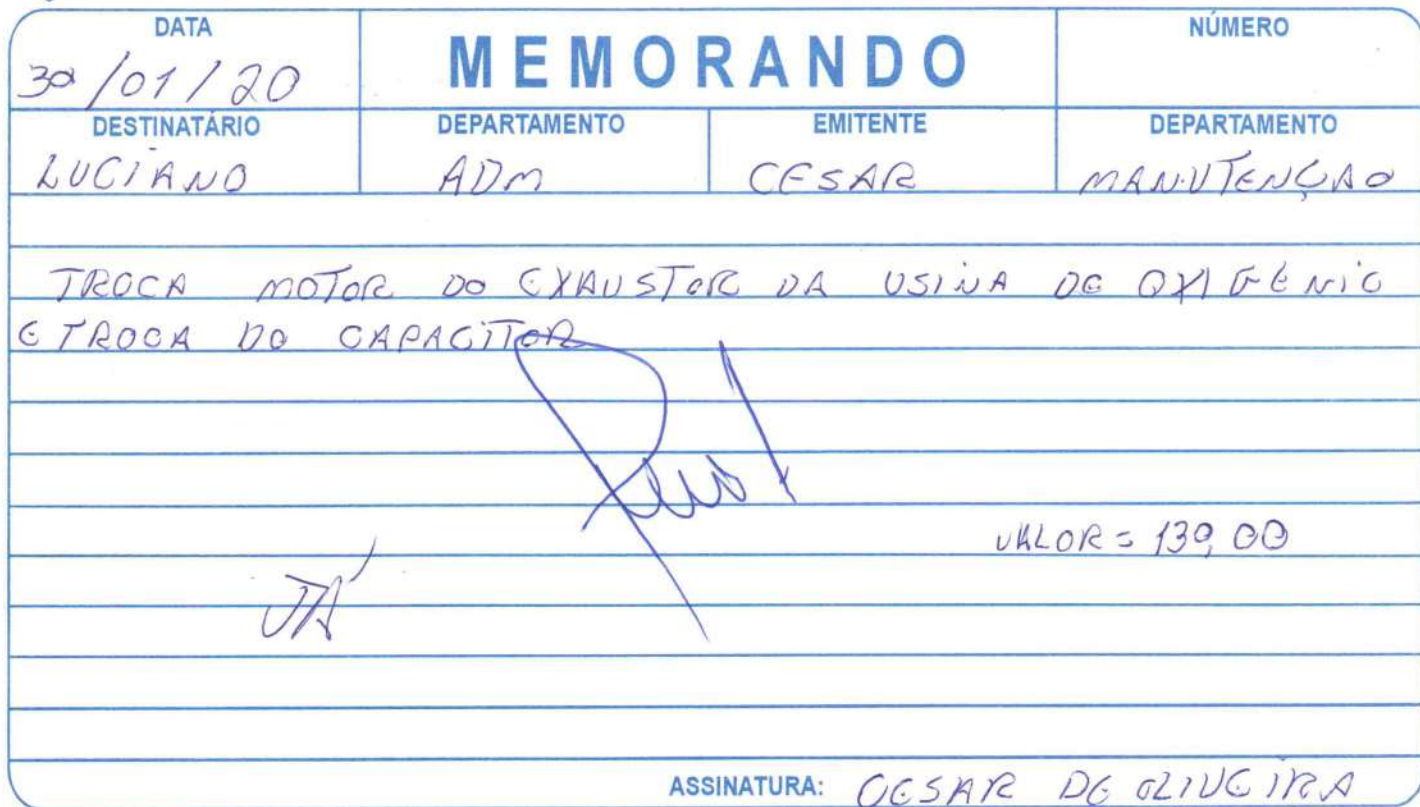 DATA
30/01/20
MEMORANDO
NÚMERO
DESTINATÁRIO
LUCIANO
DEPARTAMENTO
ADM
EMITENTE
CESAR
DEPARTAMENTO
MANUTENÇAO
TROCA MOTOR DO EXAUSTOR DA USINA DE OXIGÊNIO
E TROCA DO CAPACITOR
VALOR = 130,00
JÁ
ASSINATURA: CESAR DE OLIVEIRA